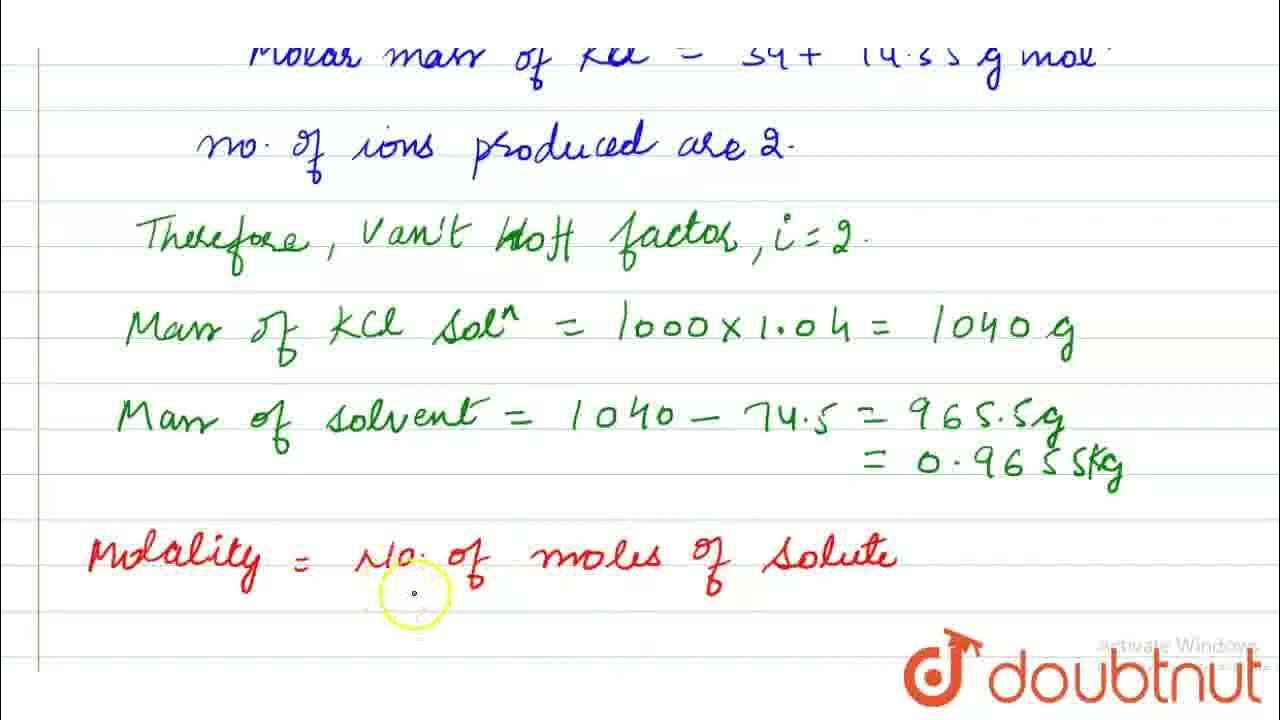 Molar mass of KCl = 39 + 
no. of ions produced are 2.
Therefore, Van't Hoff factor, i = 2.
Mass of KCl solⁿ = 1000 × 1.04 = 1040 g
Mass of solvent = 1040 – 74.5 = 965.5g
= 0.9655Kg
Molality = No. of moles of solute
Activate Windows
doubtnut